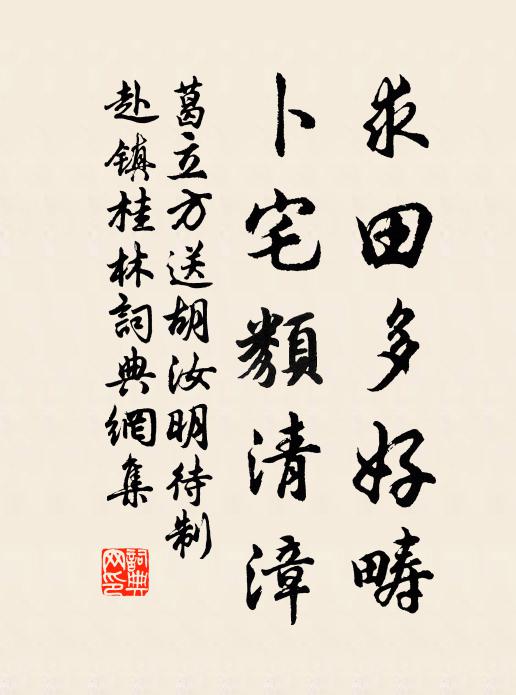 求田多好畴
卜宅類清漳
葛立方送胡汝明待制
赴镇桂林詞典網集
詞典網印